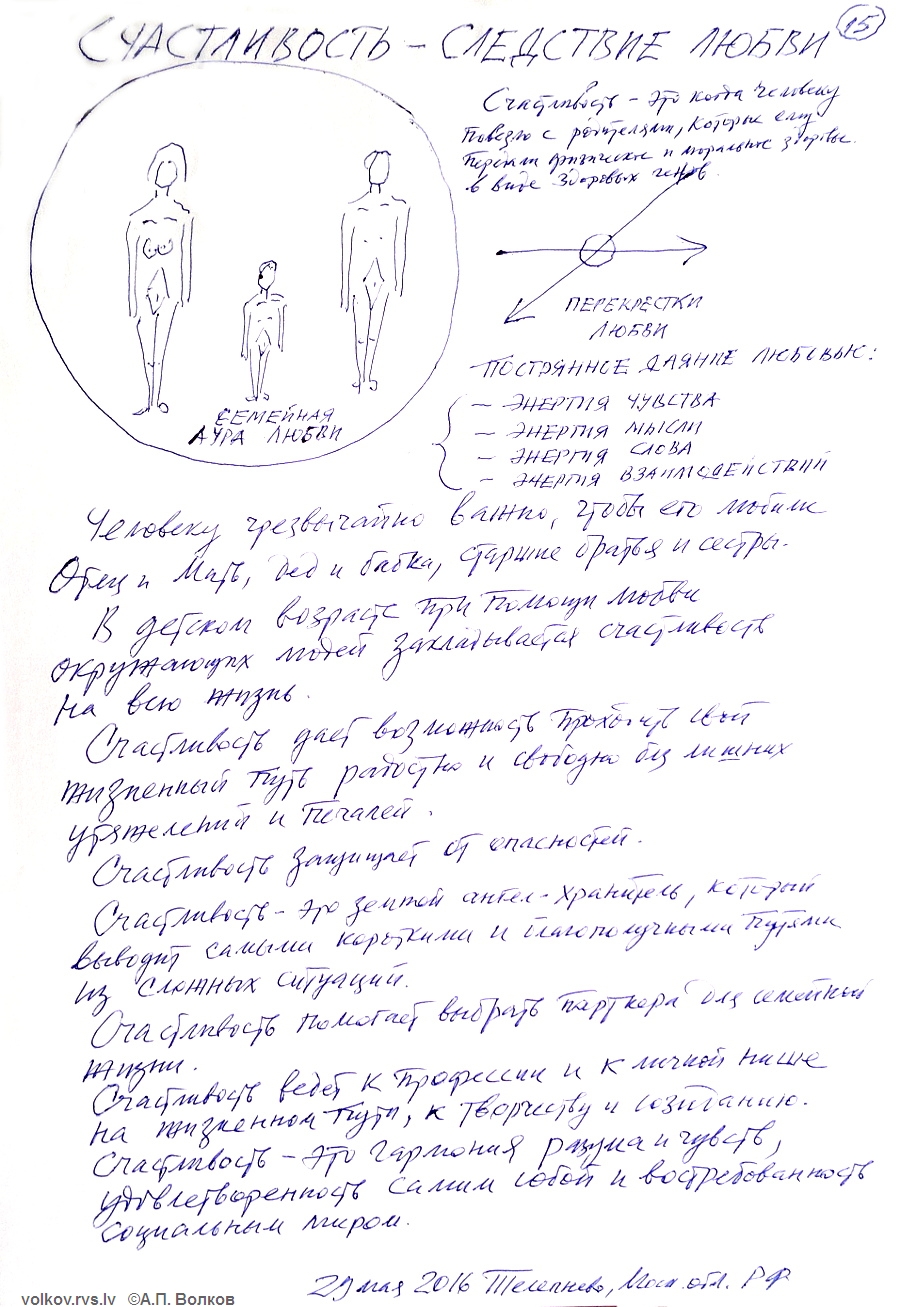 15
СЧАСТЛИВОСТЬ – СЛЕДСТВИЕ ЛЮБВИ
Счастливость – это когда человеку
повезло с родителями, которые ему
передали физическое и моральное здоровье
в виде здоровых генов.
ПЕРЕКРЕСТКИ
ЛЮБВИ
ПОСТОЯННОЕ ДАЯНИЕ ЛЮБОВЬЮ:
– ЭНЕРГИЯ ЧУВСТВА
– ЭНЕРГИЯ МЫСЛИ
– ЭНЕРГИЯ СЛОВА
– ЭНЕРГИЯ ВЗАИМОДЕЙСТВИЙ
СЕМЕЙНАЯ
АУРА ЛЮБВИ
Человеку чрезвычайно важно, чтобы его любили
Отец и Мать, дед и бабка, старшие братья и сестры.
В детском возрасте при помощи любви
окружающих людей закладывается счастливость
на всю жизнь.
Счастливость дает возможность проходить свой
жизненный путь радостно и свободно без лишних
утяжелений и печалей.
Счастливость защищает от опасностей.
Счастливость – это земной ангел-хранитель, который
выводит самыми короткими и благополучными путями
из сложных ситуаций.
Счастливость помогает выбрать партнера для семейной
жизни.
Счастливость ведет к профессии и к личной нише
на жизненном пути, к творчеству и созиданию.
Счастливость – это гармония разума и чувств,
удовлетворенность самим собой и востребованность
социальным миром.
29 мая 2016 Телепнево, Моск. обл. РФ
volkov.rvs.lv ©А.П. Волков